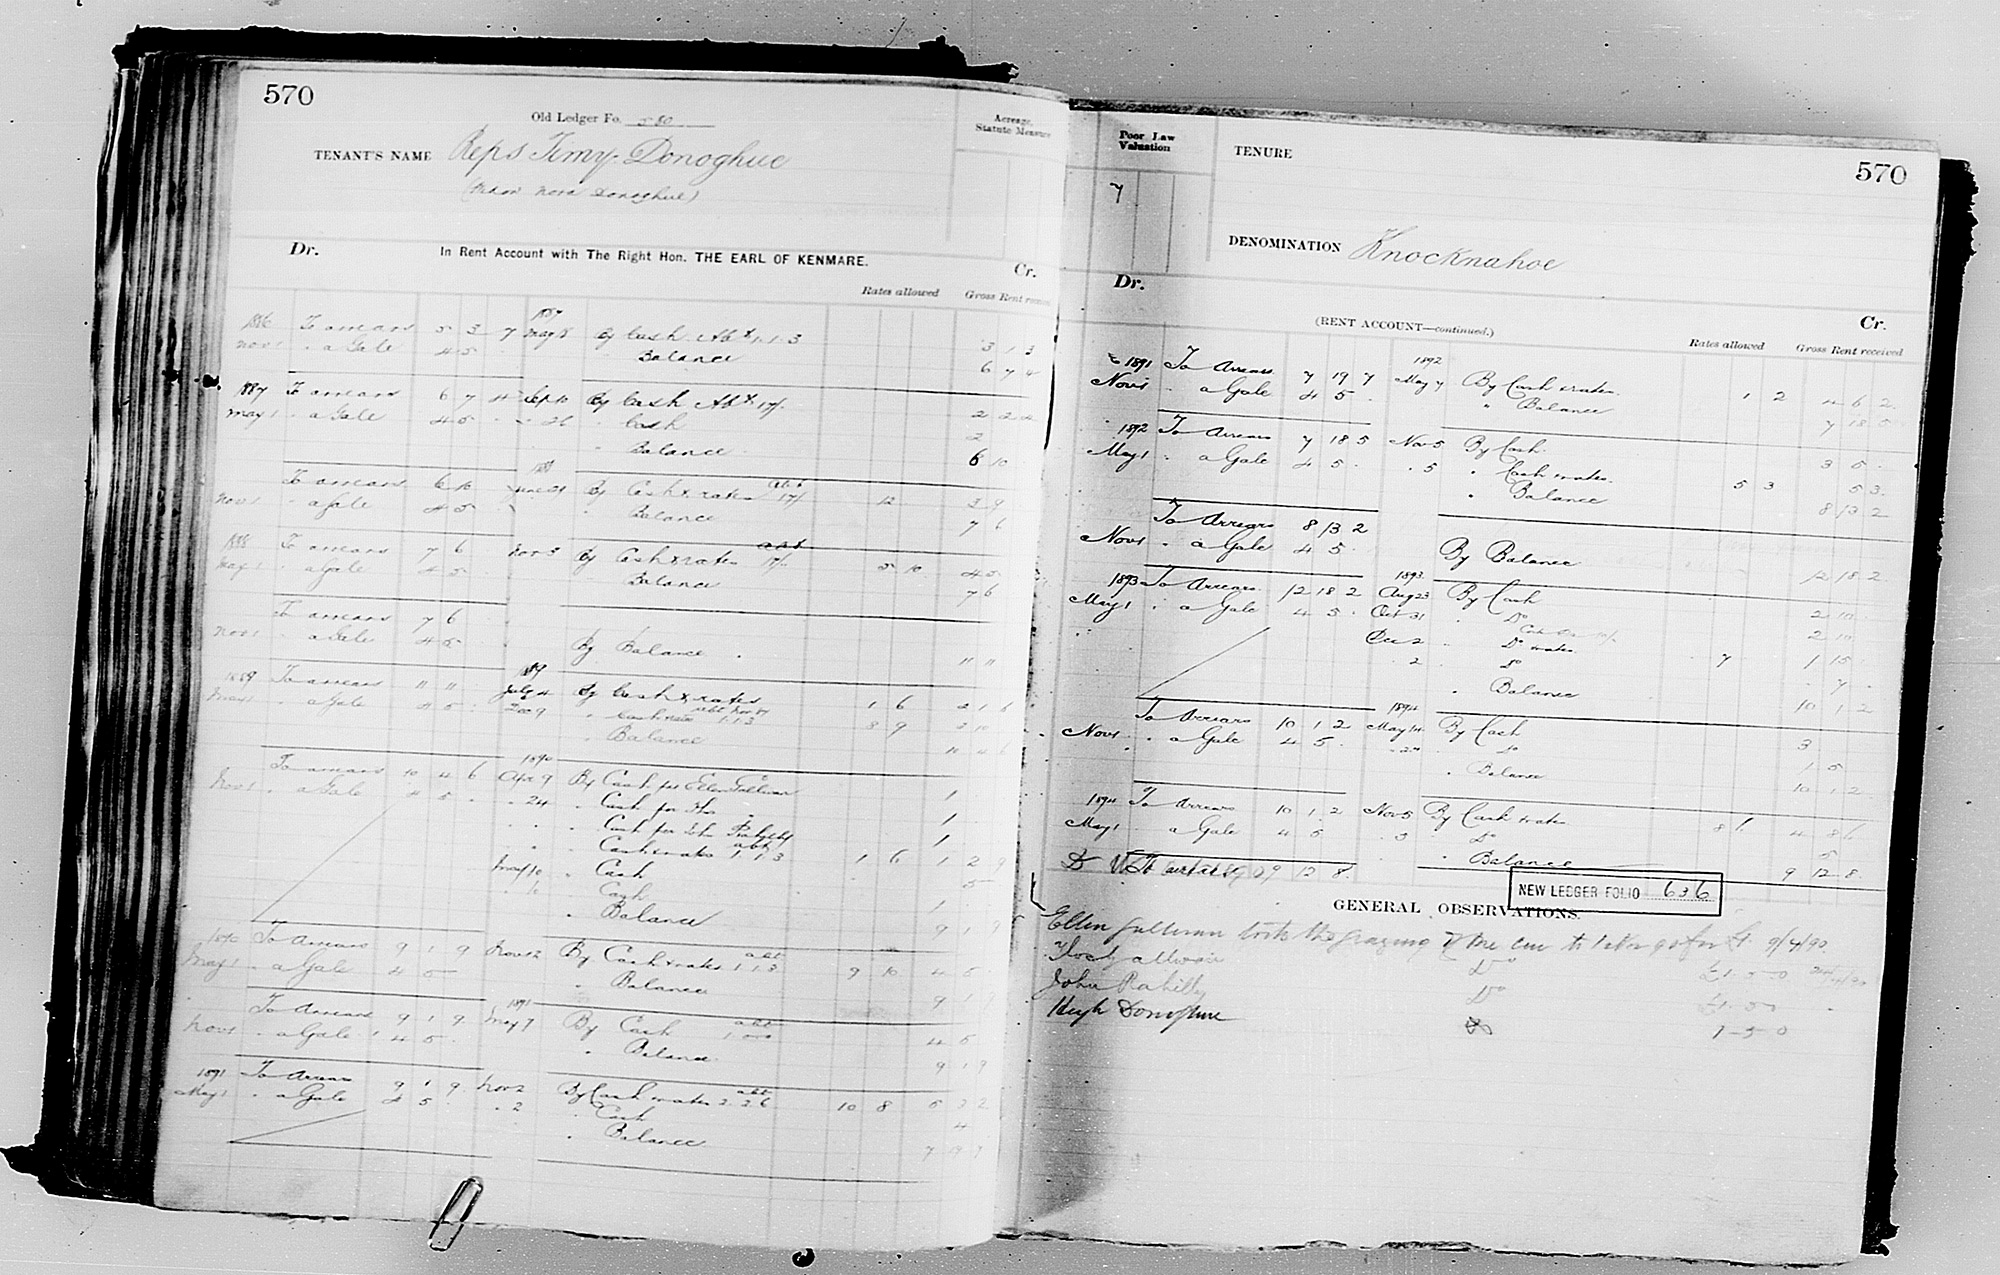 570
Old Ledger Fo. 580
TENANT'S NAME Reps Timy. Donoghue
(Widow Nora Donoghue)
Acreage, Statute Measure
Dr. In Rent Account with The Right Hon. THE EARL OF KENMARE. Cr.
Rates allowed Gross Rent
1886 To arrears 5 3 7 1887 May 8 By Cash Abt 1.1.3 3 1 3
Nov 1 " a Gale 4 5 " Balance 6 7 4
1887 To arrears 6 7 4 Sept 10 By Cash Abt 17/- 2 2 4
May 1 " a Gale 4 5 " 26 " Cash 2
" Balance 6 10
1888
To arrears 6 10 June 21 By Cash & rates abt 17/- 12 3 9
Nov 1 " a Gale 4 5 " Balance 7 6
1888 To arrears 7 6 Nov 3 By Cash & rates abt 17/- 5 10 4 5
May 1 " a Gale 4 5 Balance 7 6
To arrears 7 6
Nov 1 " a Gale 4 5 By Balance 11 11
1889 To arrears 11 11 1889 July 4 By Cash & rates 1 6 2 1 6
May 1 " a Gale 4 5 Dec 9 " Cash rates abt Nov 87 1.1.3 8 9 3 10
" Balance 10 4 6
1890
To arrears 10 4 6 Apr 9 By Cash per Ellen Sullivan 1
Nov 1 " a Gale 4 5 " 24 " Cash per Thos 1
" " Cash per John 1
" " Cash & rates abt 1.1.3 1 6 1 2 9
May 10 " Cash 5
" Cash 1
" Balance 9 1 9
1890 To Arrears 9 1 9 Nov 12 By Cash & rates abt 1.1.3 9 10 4 5
May 1 " a Gale 4 5 " Balance 9 1 9
1891
To Arrears 9 1 9 May 7 By Cash abt 4 5
Nov 1 " a Gale 4 5 " Balance 9 1 9
1891 To Arrears 9 1 9 Nov 2 By Cash rates abt 2.2.6 10 8 5 3 2
May 1 " a Gale 4 5 " 2 " Cash 4
" Balance 7 19 7
Poor Law Valuation
7
TENURE
570
DENOMINATION Knocknahoe
Dr. (RENT ACCOUNT—continued.) Cr.
Rates allowed Gross Rent received
1891 To Arrears 7 19 7 1892 May 7 By Cash & rates 1 2 4 6 2
Nov 1 " a Gale 4 5 " Balance 7 18 5
1892 To Arrears 7 18 5 Nov 5 By Cash 3 5
May 1 " a Gale 4 5 " 5 " Cash rates 5 3 5 3
" Balance 8 13 2
To Arrears 8 13 2
Nov 1 " a Gale 4 5 By Balance 12 18 2
1893 To Arrears 12 18 2 1893 Aug 23 By Cash 2 10
May 1 " a Gale 4 5 Oct 31 " Do 2 10
Dec 2 " Do rates 7 1 15
" 2 " Do 7
" Balance 10 1 2
1894
To Arrears 10 1 2 May 14 By Cash 3
Nov 1 " a Gale 4 5 " Do 1 5
" Balance 10 1 2
1894 To Arrears 10 1 2 Nov 5 By Cash rates 8 6 4 8 6
May 1 " a Gale 4 5 " 5 " Do 5
" Balance 9 12 8
To arrears 9 12 8
NEW LEDGER FOLIO 636
GENERAL OBSERVATIONS.
Ellen Sullivan took the grazing of one cow to 1 Nov 90 for £1. 9/4/90
Do £1-5-0
John Rahilly Do £1-5-0
Hugh Donoghue Do 1-5-0